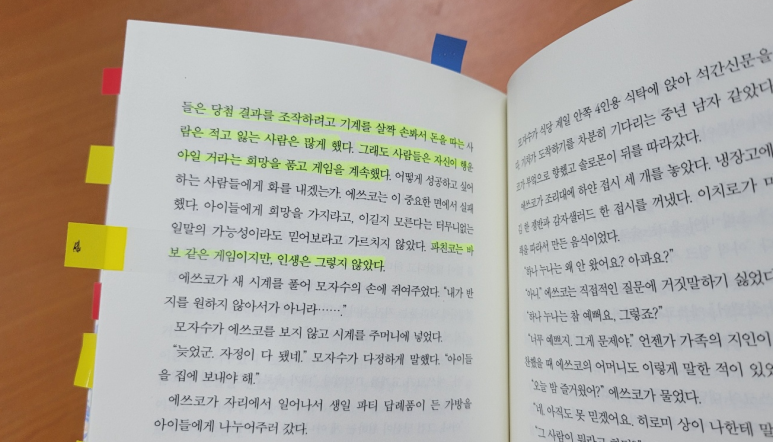 들은 당첨 결과를 조작하려고 기계를 살짝 손봐서 돈을 따는 사
람은 적고 잃는 사람은 많게 했다. 그래도 사람들은 자신이 행운
아일 거라는 희망을 품고 게임을 계속했다. 어떻게 성공하고 싶어
하는 사람들에게 화를 내겠는가. 에쓰코는 이 중요한 면에서 실패
했다. 아이들에게 희망을 가지라고, 이길지 모른다는 터무니없는
일말의 가능성이라도 믿어보라고 가르치지 않았다. 파친코는 바
보 같은 게임이지만, 인생은 그렇지 않았다.
에쓰코가 새 시계를 풀어 모자수의 손에 쥐여주었다. “내가 반
지를 원하지 않아서가 아니라…….”
모자수가 에쓰코를 보지 않고 시계를 주머니에 넣었다.
“늦었군. 자정이 다 됐네.” 모자수가 다정하게 말했다. “아이들
을 집에 보내야 해.”
에쓰코가 자리에서 일어나서 생일 파티 답례품이 든 가방을
아이들에게 나누어주러 갔다.
모자수가 식당 제일 안쪽 4인용 식탁에 앉아 석간신문을
도착하기를 차분히 기다리는 중년 남자 같았다
부엌으로 향했고 솔로몬이 뒤를 따라갔다.
에쓰코가 조리대에 하얀 접시 세 개를 놓았다. 냉장고에
한 쟁반과 감자샐러드 한 접시를 꺼냈다. 이치로가
따라서 만든 음식이었다.
“하나 누나는 왜 안 왔어요? 아파요?”
“아니.” 에쓰코는 직접적인 질문에 거짓말하기 싫었다
“하나 누나는 참 예뻐요, 그렇죠?”
“너무 예쁘지. 그게 문제야.” 언젠가 가족의 지인이
했을 때 에쓰코의 어머니도 이렇게 말한 적이 있었
“오늘 밤 즐거웠어?” 에쓰코가 물었다.
“네. 아직도 못 믿겠어요. 히로미 상이 나한테 말
“그 사람이